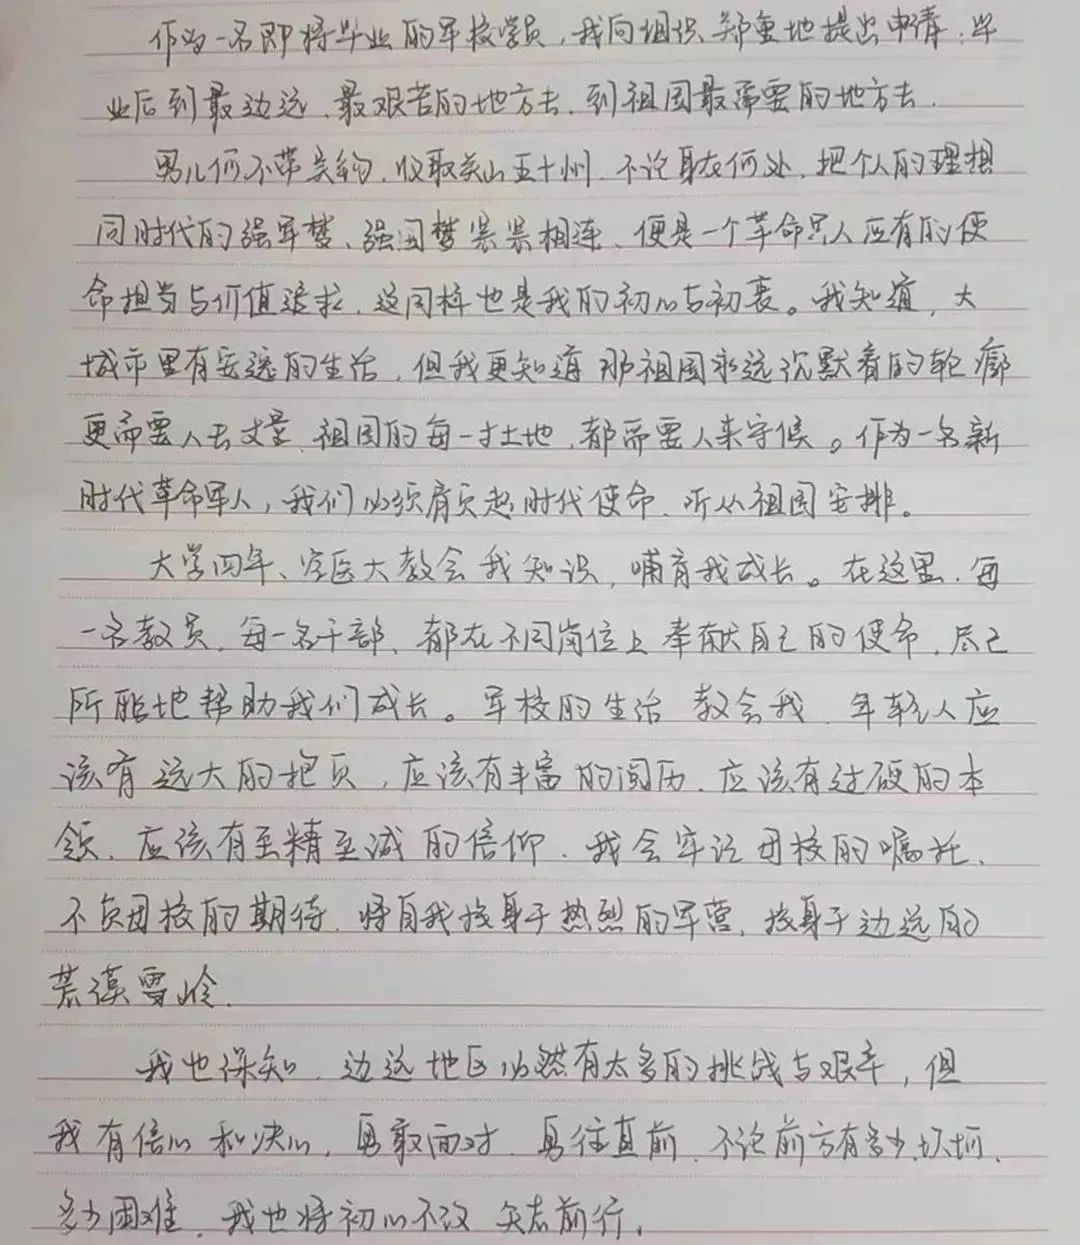 作为一名即将毕业的军校学员，我向组织郑重地提出申请：毕
业后到最边远、最艰苦的地方去，到祖国最需要的地方去。
男儿何不带吴钩，收取关山五十州。不论身在何处，把个人的理想
同时代的强军梦、强国梦紧紧相连，便是一个革命军人应有的使
命担当与价值追求，这同样也是我的初心与初衷。我知道，大
城市里有安逸的生活，但我更知道那祖国永远沉默着的轮廓
更需要人去丈量，祖国的每一寸土地，都需要人来守候。作为一名新
时代革命军人，我们必须肩负起时代使命，听从祖国安排。
大学四年、空医大教会我知识，哺育我成长。在这里，每
一名教员，每一名干部，都在不同岗位上奉献自己的使命，尽己
所能地帮助我们成长。军校的生活教会我，年轻人应
该有远大的抱负，应该有丰富的阅历，应该有过硬的本
领，应该有至精至诚的信仰。我会牢记母校的嘱托，
不负母校的期待，将自我投身于热烈的军营，投身于边远的
荒漠雪岭。
我也深知，边远地区必然有太多的挑战与艰辛，但
我有信心和决心，勇敢面对，勇往直前，不论前方有多少坎坷，
多少困难，我也将初心不改，矢志前行。